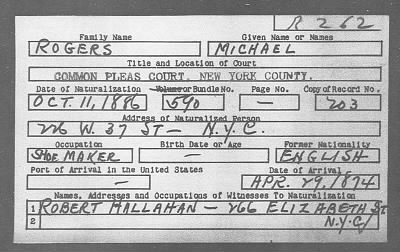 R 262
Family Name Given Name or Names
ROGERS MICHAEL
Title and Location of Court
COMMON PLEAS COURT, NEW YORK COUNTY.
Date of Naturalization Volume or Bundle No. Page No. Copy of Record No.
OCT. 11, 1886 590 — 203
Address of Naturalized Person
226 W. 37 ST — N.Y.C.
Occupation Birth Date or Age Former Nationality
SHOE MAKER — ENGLISH
Port of Arrival in the United States Date of Arrival
— APR. 29, 1874
Names, Addresses and Occupations of Witnesses To Naturalization
1 ROBERT HALLAHAN — 266 ELIZABETH ST
2 N.Y.C.